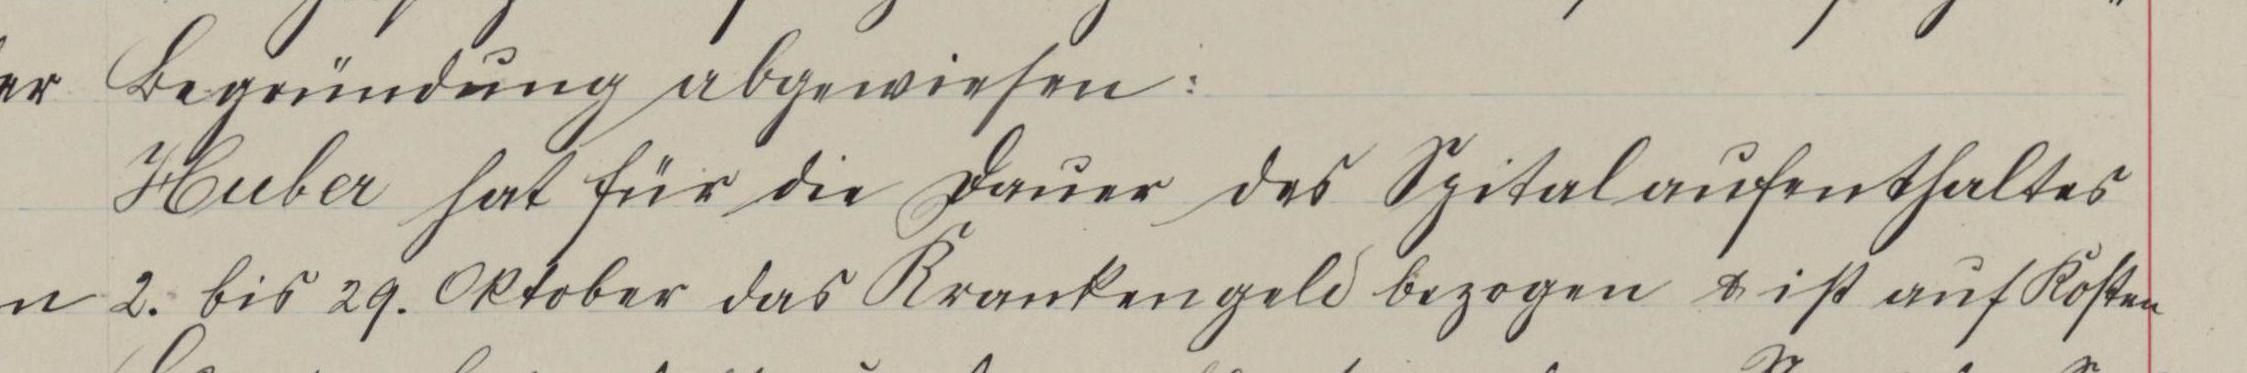 er Begründung abgewiesen:
Huber hat für die Dauer des Spitalaufenthaltes
n 2. bis 29. Oktober das Krankengeld bezogen & ist auf Kosten